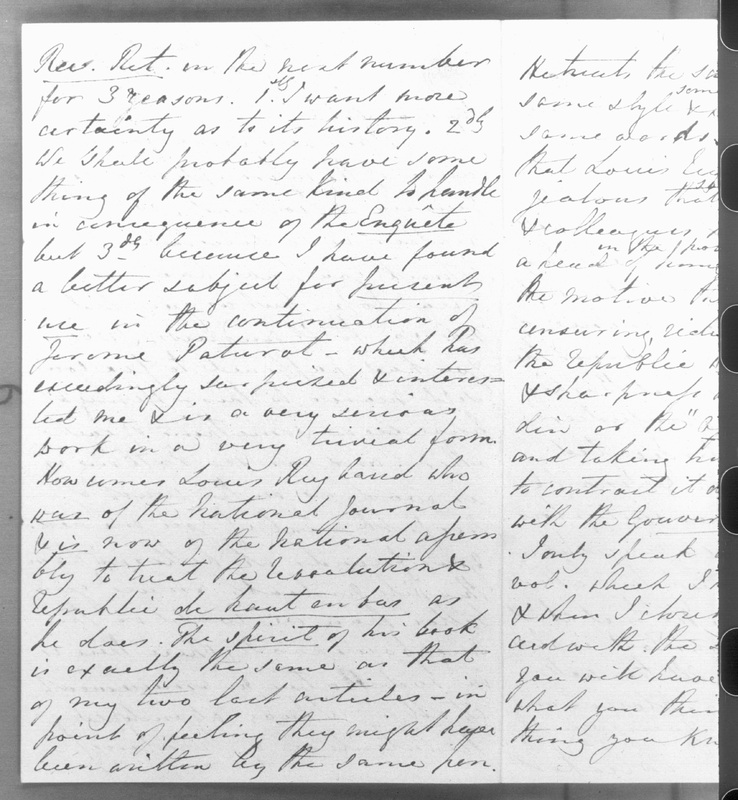 Rev. Ret. in the next number
for 3 reasons. 1.stly I want more
certainty as to its history. 2dly
We shall probably have some
thing of the same kind to handle
in consequence of the Enquête
but 3dly because I have found
a better subject for present
use in the continuation of
Jerome Paturot - which has
exceedingly surprized & interes=
ted me & is a very serious
work in a very trivial form.
How comes Louis Reybaud who
was of the National Journal
& is now of the National assem
bly to treat the Revolution &
Republic de haut en bas as
he does. The spirit of his book
is exactly the same as that
of my two last articles - in
point of feeling they might have
been written by the same pen.
He treats the
same style &
same words
that Louis
jealous that
& colleagues
in the
a head of
the motive
censuring
the Republic
& sharpness
din or the
and taking
to contrast it
with the Gouver
I only speak
vol. which I
& when I
ced with the
you will have
what you thin
thing you kn